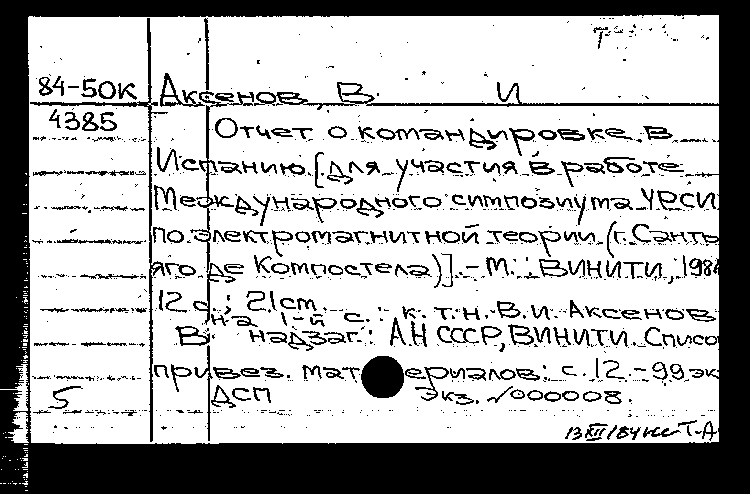 84-50к Аксенов, В. И
4385 Отчет о командировке в
Испанию [для участия в работе
Международного симпозиума УРСИ
по электромагнитной теории (г. Санть
яго де Компостела)]. - М.: ВИНИТИ, 198
12 с.; 21 cm.
на 1-й с.: к.т.н. В.И. Аксенов
В надзаг.: АН СССР, ВИНИТИ. Списо
привез. материалов: с. 12. - 99 эк
5 ДСП Экз. №000008.
13 XII 84 Т-А